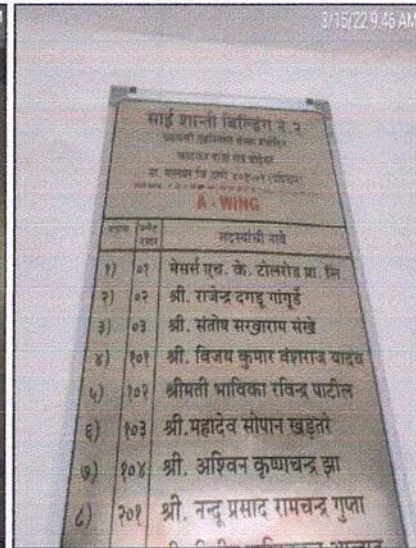 3/15/22 9:46 AM
साई शान्ती बिल्डिंग नं. २
सहकारी गृहनिर्माण संस्था मर्यादित
A - WING
सदस्यांची नावे
१) ०१ मेसर्स एच. के. टोलरोड प्रा. लि
२) ०२ श्री. राजेन्द्र दगडू गांगुर्डे
३) ०३ श्री. संतोष सखाराम संखे
४) १०१ श्री. विजय कुमार वंशराज यादव
५) १०२ श्रीमती भाविका रविन्द्र पाटील
६) १०३ श्री.महादेव सोपान खडतरे
७) १०४ श्री. अश्विन कृष्णचन्द्र झा
८) २०१ श्री. नन्दू प्रसाद रामचन्द्र गुप्ता